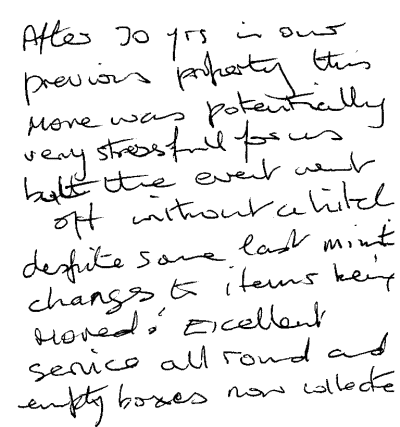 After 30 yrs in our
previous property this
move was potentially
very stressfull for us
but the event went
off without a hitch
despite some last minit
changes to items being
moved. Excellent
service all round and
empty boxes now collecte